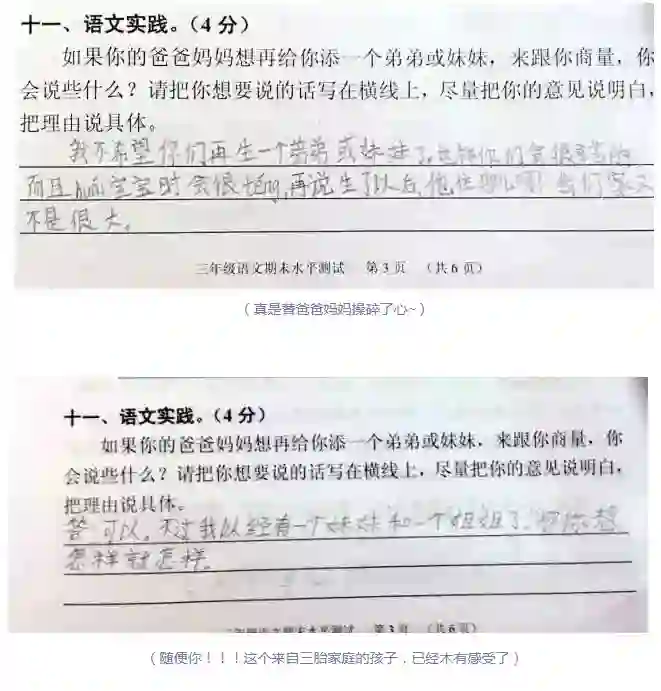 十一、语文实践。（4 分）
如果你的爸爸妈妈想再给你添一个弟弟或妹妹，来跟你商量，你
会说些什么？请把你想要说的话写在横线上，尽量把你的意见说明白，
把理由说具体。
我不希望你们再生一个弟弟或妹妹了，你们会很
而且huái宝宝时会很 再说生了以后他住哪儿呢 我们家又
不是很大。
三年级语文期末水平测试 第 3 页 （共 6 页）
（真是替爸爸妈妈操碎了心~）
十一、语文实践。（4 分）
如果你的爸爸妈妈想再给你添一个弟弟或妹妹，来跟你商量，你
会说些什么？请把你想要说的话写在横线上，尽量把你的意见说明白，
把理由说具体。
答 可以，不过我以经有一个妹妹和一个姐姐了， 你想
怎样就怎样。
三年级语文期末水平测试 第 3 页 （共 6 页）
（随便你！！！这个来自三胎家庭的孩子．已经木有感受了）